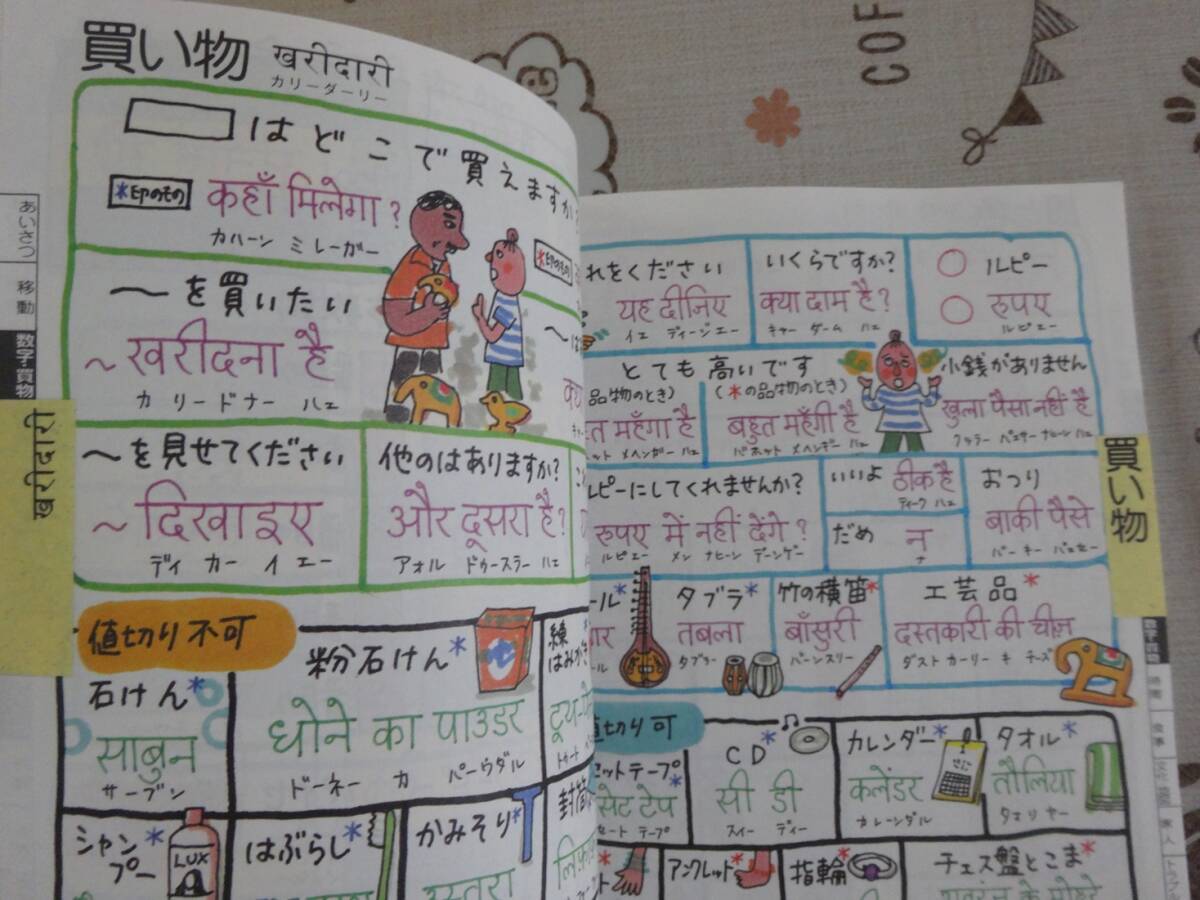 買い物 खरीदारी
カリーダーリー
はどこで買えますか?
*印のもの कहाँ मिलेगा ?
カハーン ミレーガー
〜を買いたい
~खरीदना है
カリードナー ハェ
〜を見せてください
~दिखाइए
ディカーイエー
他のはありますか?
और दूसरा है?
アオル ドゥースラー ハェ
値切り不可
石けん*
साबुन
サーブン
粉石けん*
धोने का पाउडर
ドーネー カ パーウダル
シャンプー*
LUX
はぶらし*
かみそり*
उस्तरा
あいさつ
移動
数字・買物
खरीदारी
COF
*印のもの
れをください
यह दीजिए
イェ ディージエー
いくらですか?
क्या दाम है?
キャー ダーム ハェ
○ ルピー
○ रुपए
ルピエー
とても高いです
品物のとき)
त महँगा है
(*の品物のとき)
बहुत महँगी है
バホット メヘンギー ハェ
小銭がありません
खुला पैसा नहीं है
ルピーにしてくれませんか?
रुपए में नहीं देंगे ?
ルピエー メン ナヒーン デーンゲー
いいよ ठीक है
ティーク ハェ
だめ न
ナ
おつり
बाकी पैसे
バーキー パェセー
ール*
タブラ*
तबला
タブラー
竹の横笛*
बाँसुरी
バーンスリー
工芸品*
दस्तकारी की चीज़
ダストカーリー キ チーズ
値切り可
セットテープ*
सेट टेप
セート テープ
CD*
सी डी
スィー ディー
カレンダー*
कलेंडर
カレーンダル
タオル*
तौलिया
タオリヤー
アンクレット*
指輪*
チェス盤とこま*
買い物
数字・買物
時間
食事